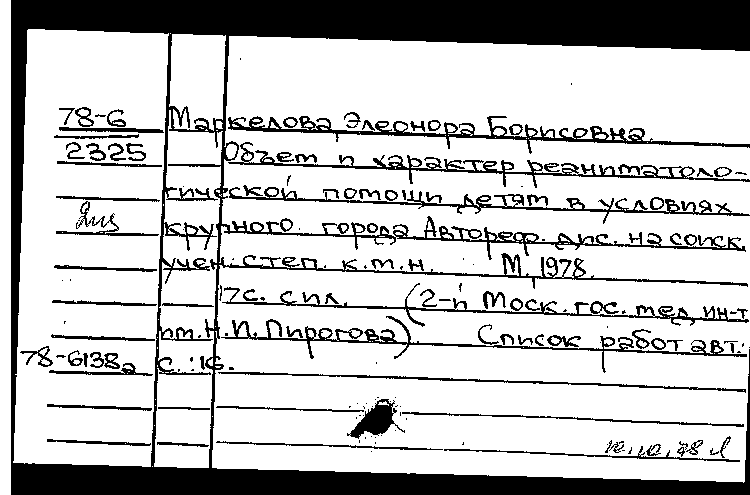 78-6 Маркелова, Элеонора Борисовна.
2325 Объем и характер реаниматоло-
гической помощи детям в условиях
крупного города Автореф. дис. на соиск.
учен. степ. к.м.н. М., 1978.
17 с. с ил. (2-й Моск. гос. мед. ин-т
им. Н.И. Пирогова). Список работ авт.:
78-6138а с. 16.